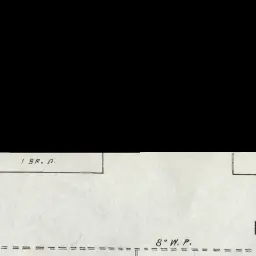 1 BR. D.
8" W. P.